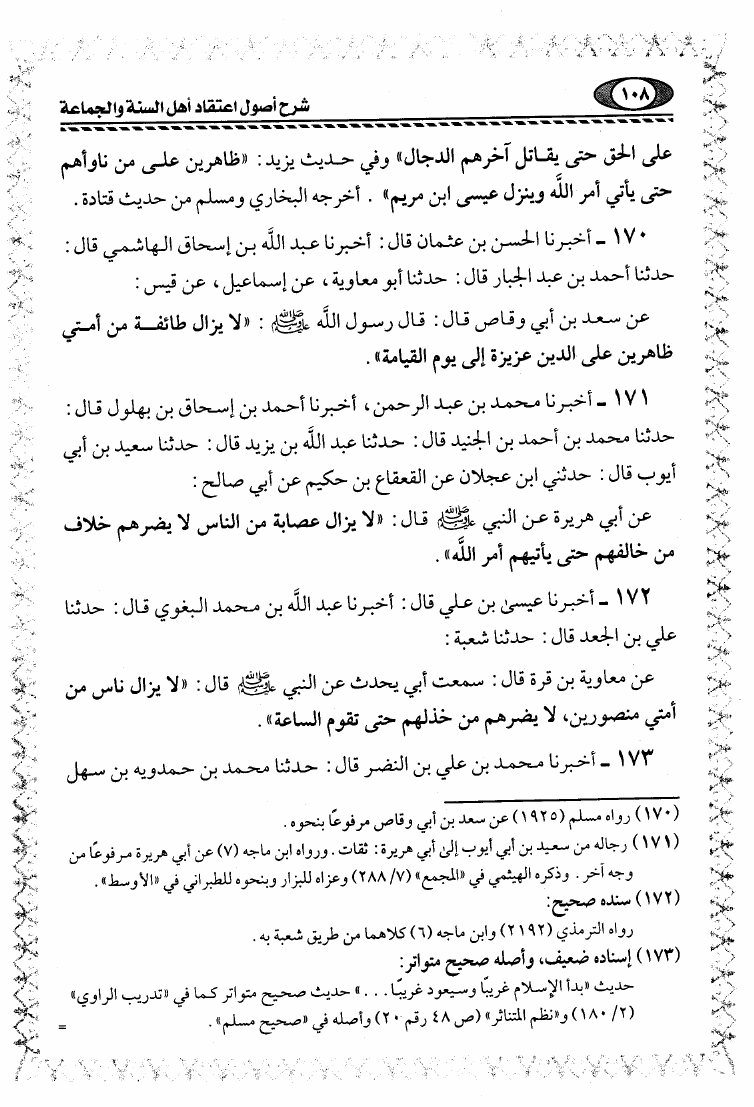 ١٠٨
شرح أصول اعتقاد أهل السنة والجماعة
على الحق حتى يقاتل آخرهم الدجال» وفي حديث يزيد: «ظاهرين على من ناوأهم
حتى يأتي أمر اللَّه وينزل عيسى ابن مريم» . أخرجه البخاري ومسلم من حديث قتادة.
١٧٠ ـ أخبرنا الحسن بن عثمان قال: أخبرنا عبد اللَّه بن إسحاق الهاشمي قال:
حدثنا أحمد بن عبد الجبار قال: حدثنا أبو معاوية، عن إسماعيل، عن قيس:
عن سعد بن أبي وقاص قال: قال رسول اللَّه ﷺ : «لا يزال طائفة من أمتي
ظاهرين على الدين عزيزة إلى يوم القيامة».
١٧١ ـ أخبرنا محمد بن عبد الرحمن، أخبرنا أحمد بن إسحاق بن بهلول قال:
حدثنا محمد بن أحمد بن الجنيد قال: حدثنا عبد اللَّه بن يزيد قال: حدثنا سعيد بن أبي
أيوب قال: حدثني ابن عجلان عن القعقاع بن حكيم عن أبي صالح:
عن أبي هريرة عن النبي ﷺ قال: «لا يزال عصابة من الناس لا يضرهم خلاف
من خالفهم حتى يأتيهم أمر اللَّه».
١٧٢ ـ أخبرنا عيسىٰ بن علي قال: أخبرنا عبد اللَّه بن محمد البغوي قال: حدثنا
علي بن الجعد قال: حدثنا شعبة:
عن معاوية بن قرة قال: سمعت أبي يحدث عن النبي ﷺ قال: «لا يزال ناس من
أمتي منصورين، لا يضرهم من خذلهم حتى تقوم الساعة».
١٧٣ ـ أخبرنا محمد بن علي بن النضر قال: حدثنا محمد بن حمدويه بن سهل
(١٧٠) رواه مسلم (١٩٢٥) عن سعد بن أبي وقاص مرفوعًا بنحوه.
(١٧١) رجاله من سعيد بن أبي أيوب إلىٰ أبي هريرة: ثقات. ورواه ابن ماجه (٧) عن أبي هريرة مرفوعًا من
وجه آخر. وذكره الهيثمي في «المجمع» (٧/ ٢٨٨) وعزاه للبزار وبنحوه للطبراني في «الأوسط».
(١٧٢) سنده صحيح:
رواه الترمذي (٢١٩٢) وابن ماجه (٦) كلاهما من طريق شعبة به.
(١٧٣) إسناده ضعيف، وأصله صحيح متواتر:
حديث «بدأ الإسلام غريبًا وسيعود غريبًا...» حديث صحيح متواتر كما في «تدريب الراوي»
(٢/ ١٨٠) و«نظم المتناثر» (ص ٤٨ رقم ٢٠) وأصله في «صحيح مسلم».
=